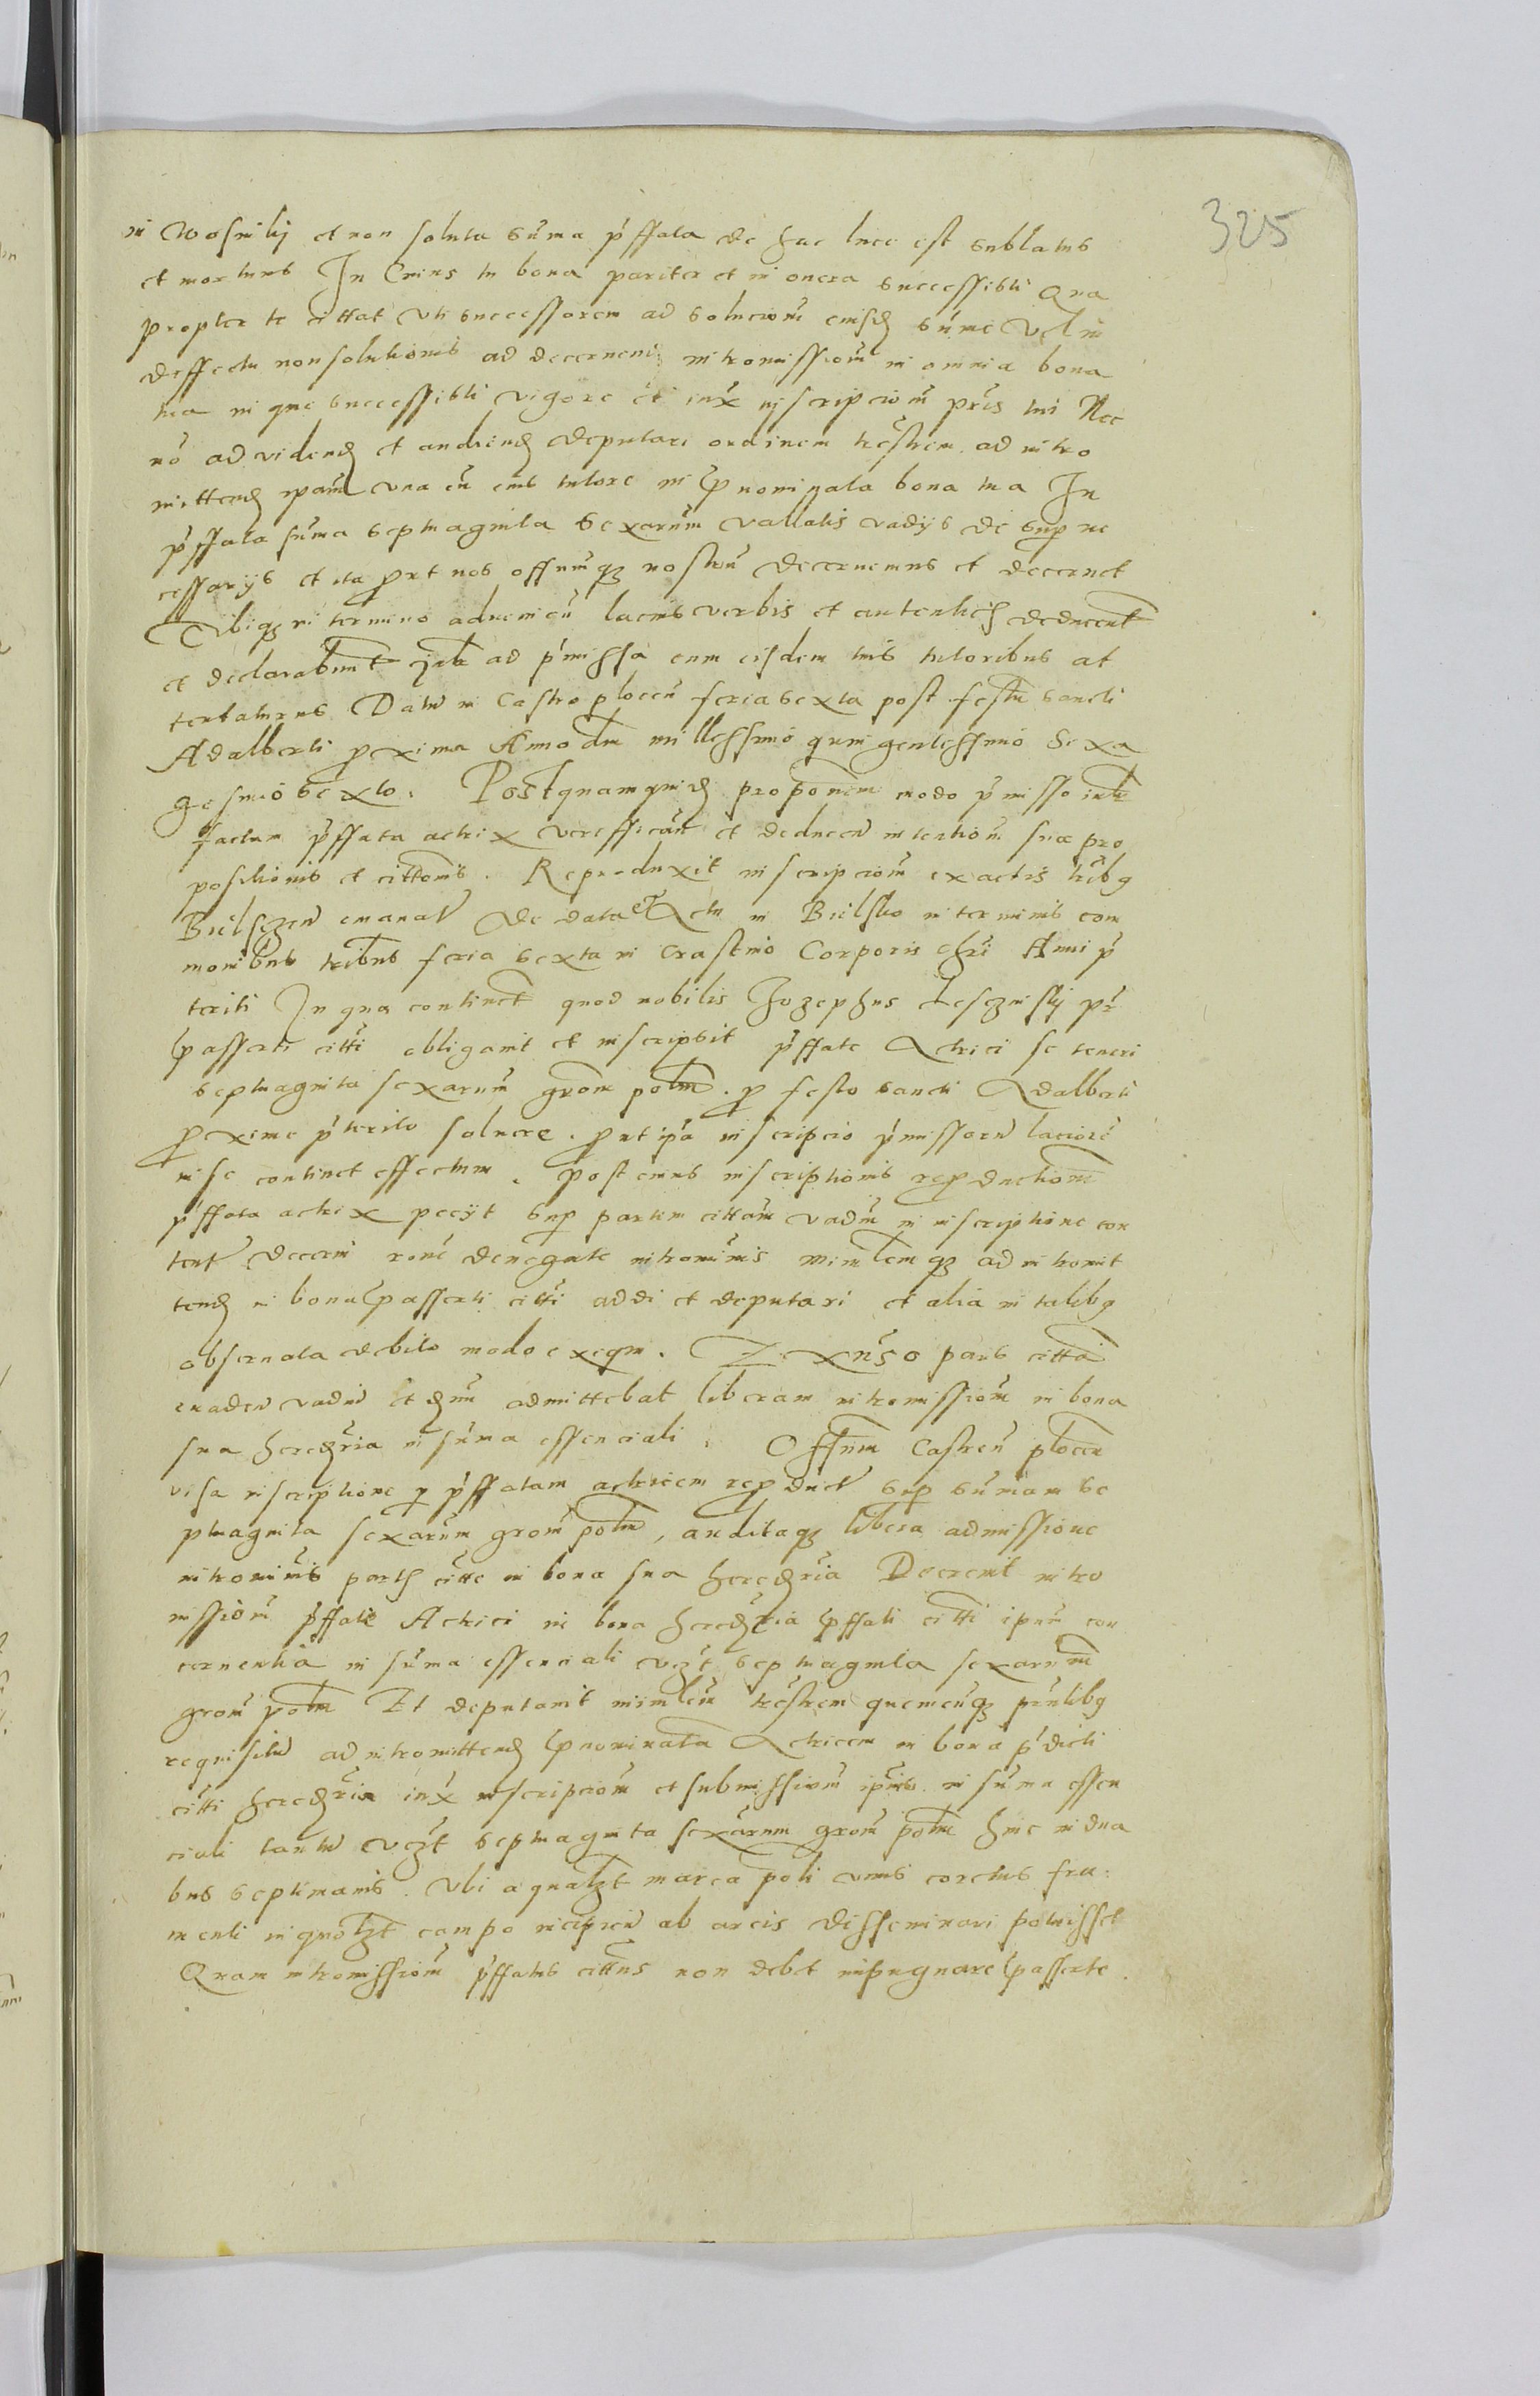 325
in Wosniky et non soluta sum̄a p̄ffata de hac luce est sublatus
et mortuus In Cuius tu bona pariter et in onera successisti Qua
propter te cittat vti successorem ad solucionē eiusdē sum̄e Vel in
deffectu non solutionis ad decernend intromissionē in omnia bona
tua in que successisti vigore et iux inscripcionē pris tui Nec
nō ad videnđ et audienđ deputari ordinem trēstrem ad intro
mittenđ ipam̄ vna cū eius tutore in pnominata bona tua In
p̄ffata sum̄a septuaginta sexarum vallatis vadijs de super ne
cessarijs et ita prt nos offumq nostrū decernemus et decernet
Tibiq in termino adueniēn lacius verbis et autenticis deducent
et declarabunt Jtē ad p̄missa cum eisdem tuis tutoribus at
tentaturus Datū in Castro plocen̄ feria sexta post festū sancti
Adalberti proxima Anno dni millessimo quingentessimo sexa
gesimo sexto. Postquamquidē proponem̄ modo p̄misso inter
factum p̄ffata actrix verefficān et deducen̄ intentionē sue pro
positionis et cittonis. Reproduxit inscripcionē ex actis trībq
Bielscen̄ emanat De data et Actu in Bielsko in terminis com
monibus trībus feria sexta in Crastino Corporis chri Anni p̄
teriti In qua continet quod nobilis Jozephus Lesczinsky pr
passerti citti obligauit et inscripsit p̄ffate Actrici se teneri
septuaginta sexarum grom polm. pro festo sancti Adalberti
proxime p̄terito soluere. prt ipa inscripcio p̄missorū laciorē
in se continet effectum. post cuius inscriptionis reproductionē
p̄ffata actrix pecijt super partem cittam vadm in inscriptione con
tent decerni rone denegate intromis ministemq ad intromit
tenđ in bona passerti citti addi et deputari et alia in talibq
obseruata debito modo exequi. Ex aduso pars citta
euaden vadiū admittebat liberam intromissionē in bona
sua heređria in sum̄a essenciali. Offum Castren̄ plocen
visa inscriptione p̄ p̄ffatam actricem reproduct super sum̄am se
ptuaginta sexarum grom̄ polm, auditaq libera admissione
intromis partis citte in bona sua heređria Decreuit intro
missionē p̄ffate Actrici in bona heređria p̄ffati citti ipum con
cernentia in sum̄a essenciali vczt septuaginta sexarum
grom̄ polm Et deputauit ministem trēstrem quemcunq prntibq
requisitū ad intromittenđ pnominata Actricem in bona p̄dicti
citti heređria iux inscripcionē et submissionē ipius in sum̄a essen
ciali tantū vczt septuaginta sexarum grom̄ polm hinc in dua
bus septimanis. Vbi a qualzt marca poli vnius coretus fru:
menti in quolzt campo incipien ab arcis disseminari potuisset
Quam intromissionē p̄ffatus cittus non debet inpugnare passerte.